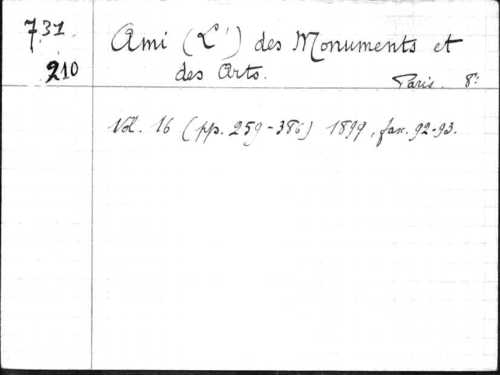 731
210
Ami (L') des Monuments et
des Arts.
Paris. 8:
Vol. 16 (pp. 259-386) 1899, fasc. 92-93.